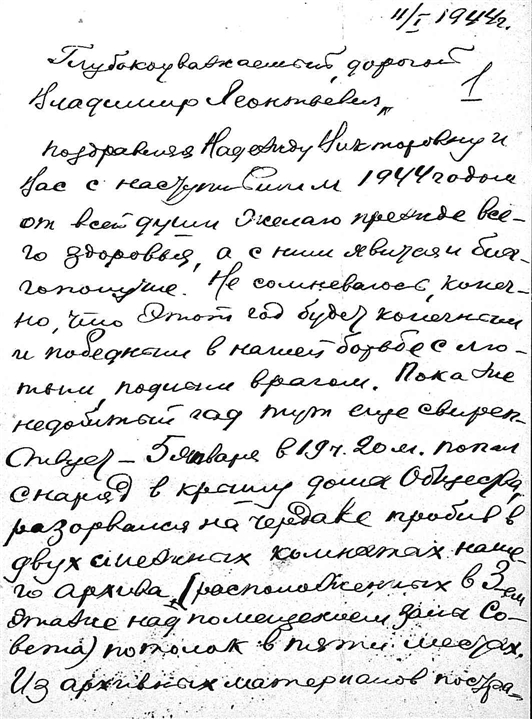 11/I 1944г.
Глубокоуважаемый, дорогой
1
Владимир Леонтьевич,
поздравляя Надежду Викторовну и
Вас с наступившим 1944 годом
от всей души желаю прежде все-
го здоровья, а с ним явится и бла-
гополучие. Не сомневаюсь, конеч-
но, что этот год будет конечным
и победным в нашей борьбе с лю-
тым, подлым врагом. Пока же
недобитый гад тут еще свиреп-
ствует – 5 января в 19 ч. 20 м. попал
снаряд в крышу дома Общества,
разорвался на чердаке пробив в
двух смежных комнатах наше-
го архива, (расположенных в 3-ем
этаже над помещением залы Со-
вета) потолок в пяти местах.
Из архивных материалов постра-